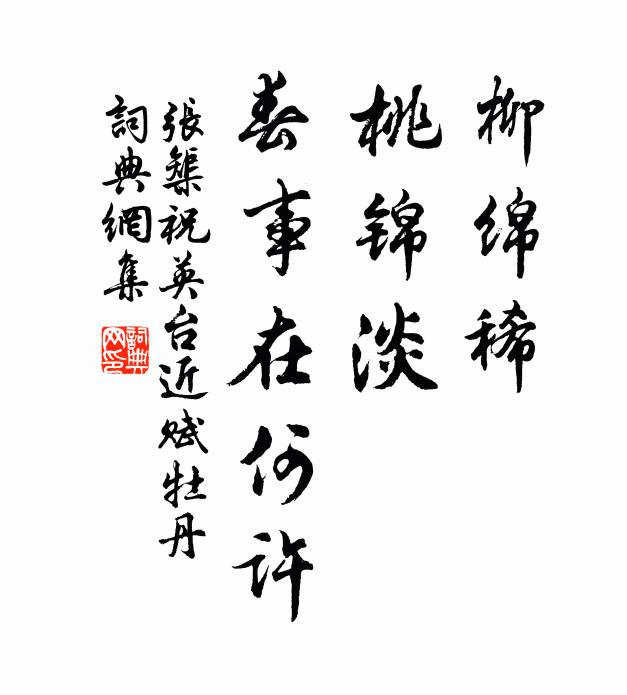 柳绵稀
桃锦淡
春事在何许
張榘祝英台近赋牡丹
詞典網集
詞典网印